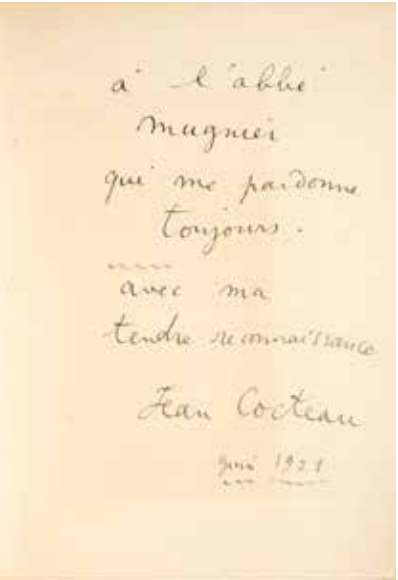 à l'abbé
mugnier
qui me pardonne
toujours.
avec ma
tendre reconnaissance
Jean Cocteau
1921